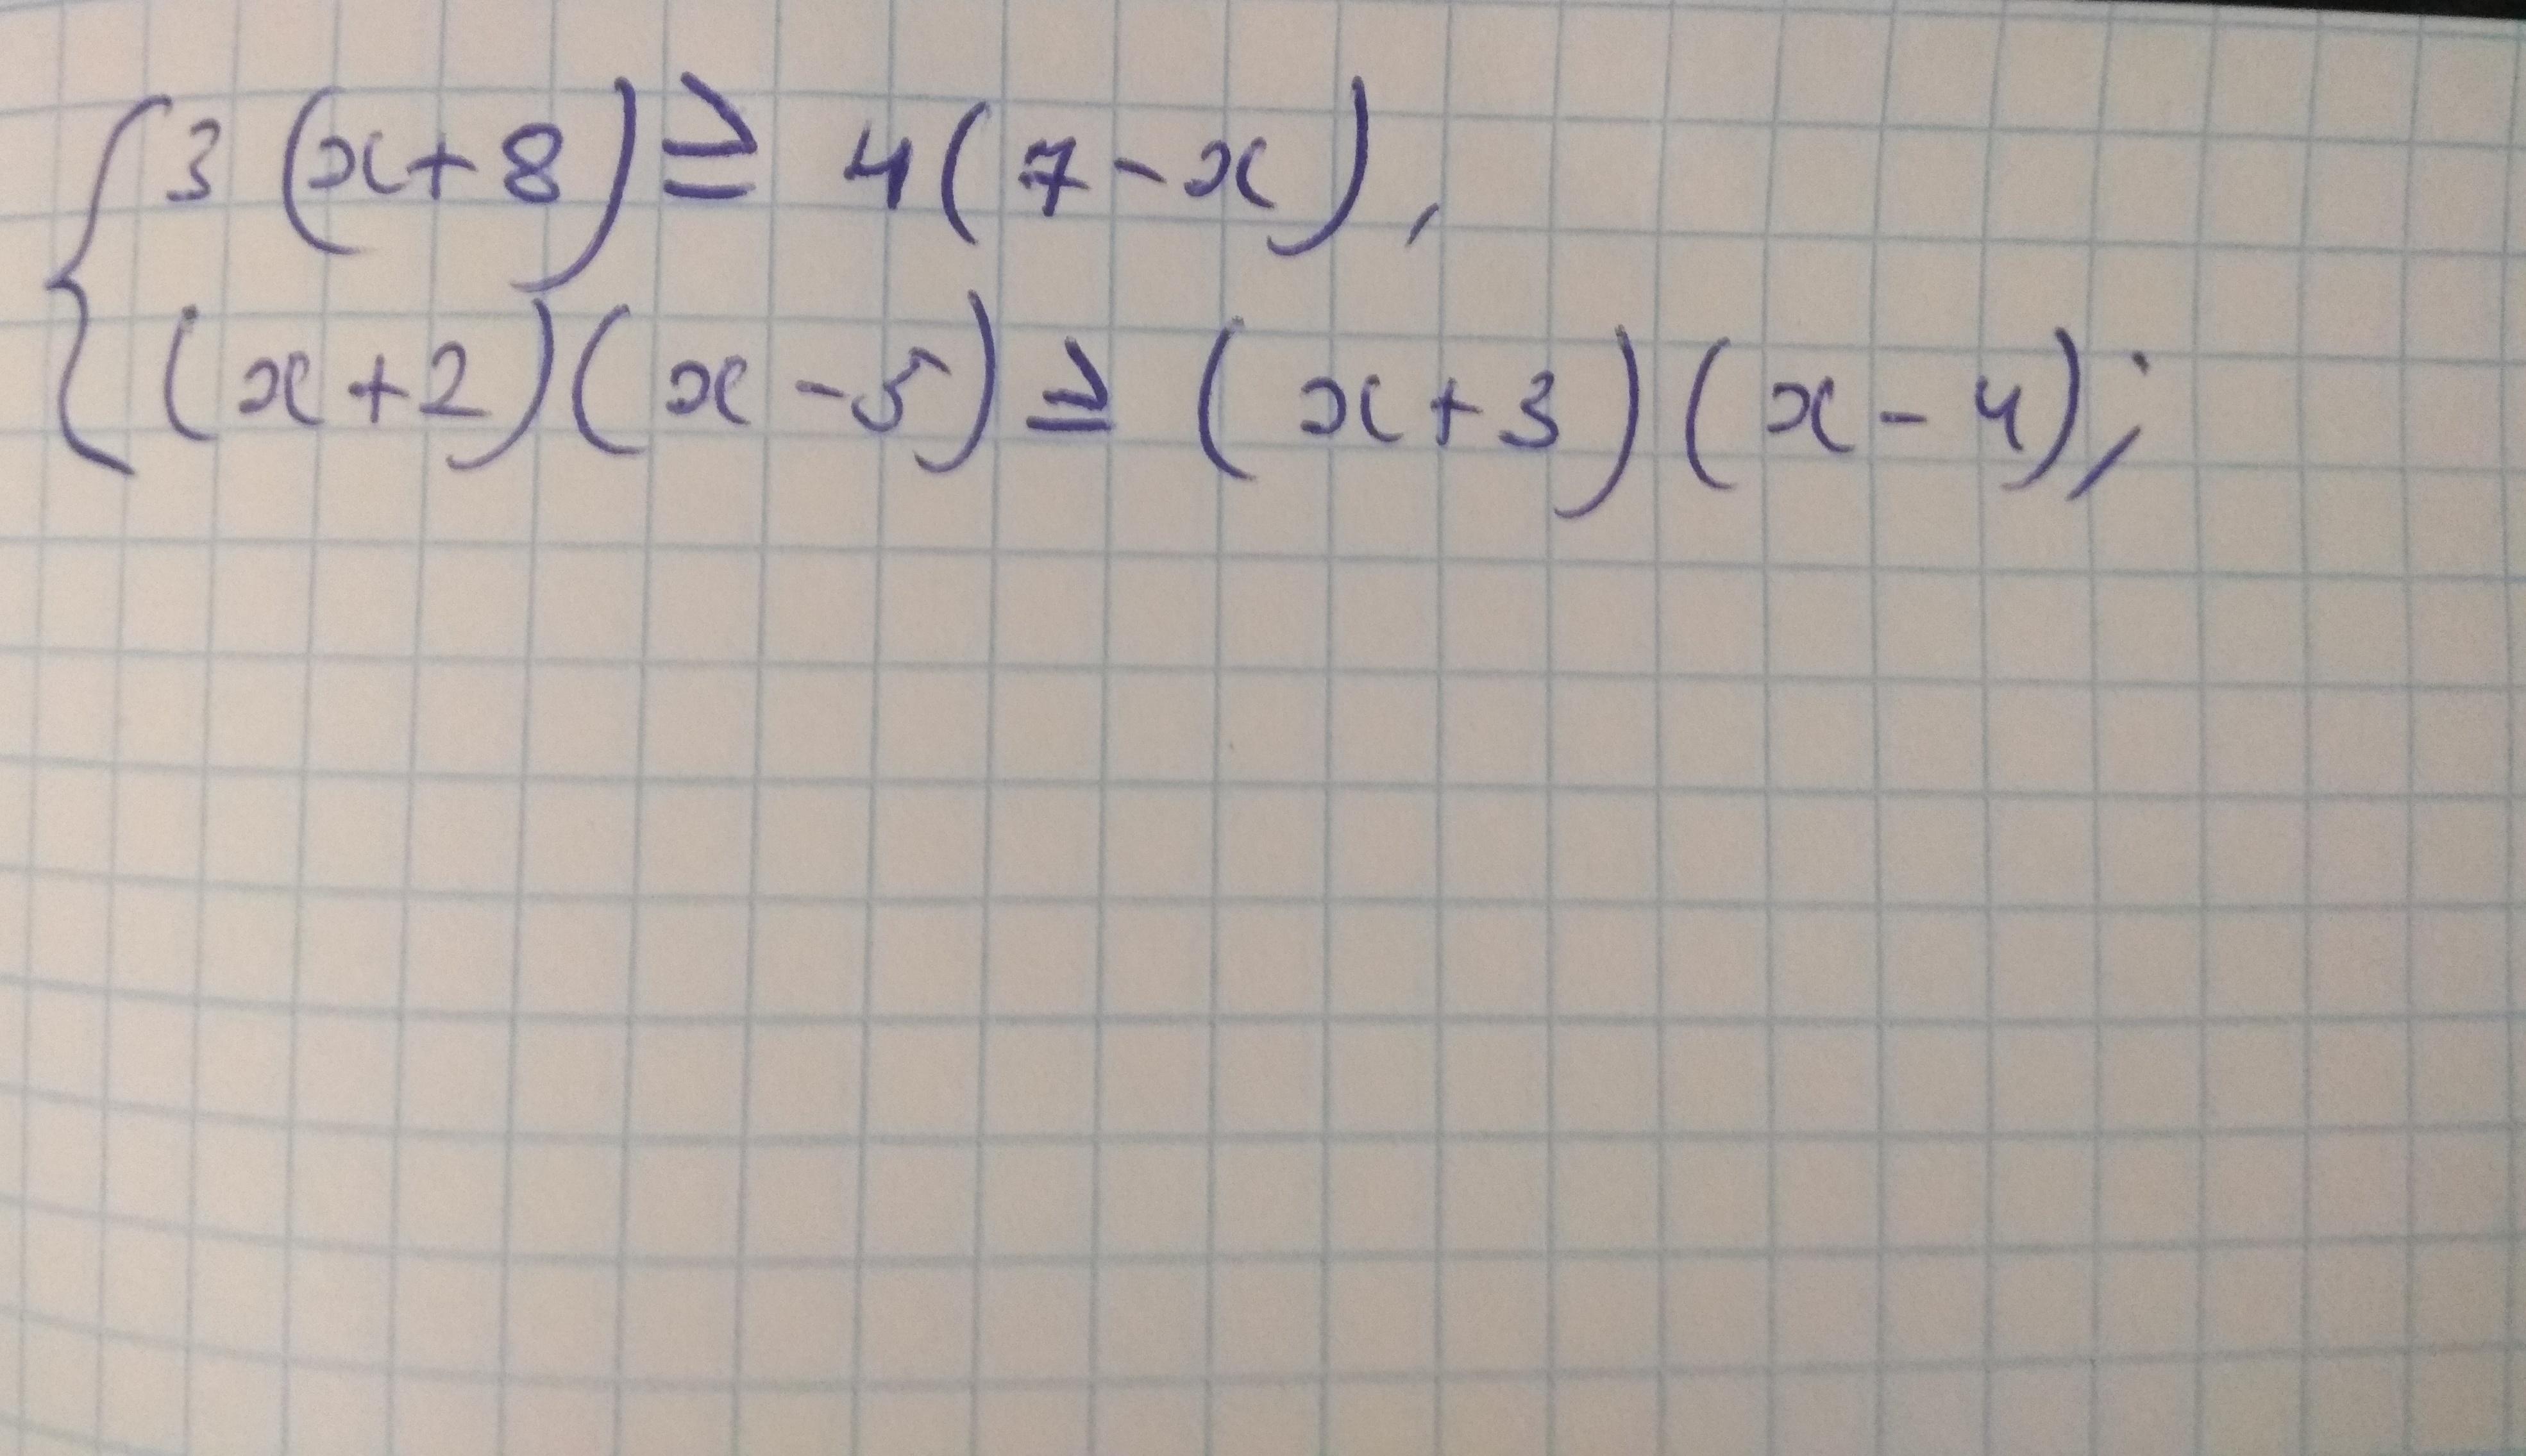 { 3(x+8) ≥ 4(7-x),
(x+2)(x-5) ≥ (x+3)(x-4);